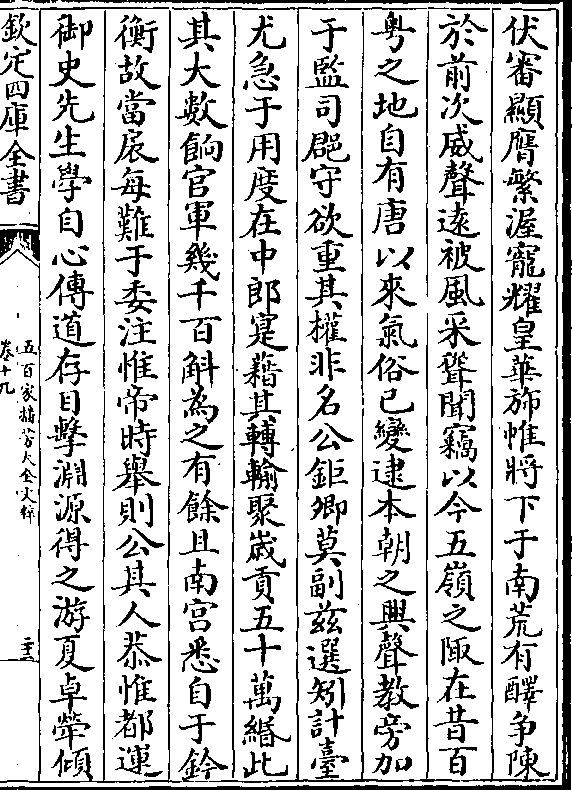 伏審顯膺繁渥寵耀皇華旆帷將下于南荒有驛爭陳
於前次威聲遠被風采聳聞竊以今五嶺之陬在昔百
粤之地自有唐以來氣俗已變逮本朝之興聲教旁加
于監司郡守欲重其權非名公鉅卿莫副兹選矧計臺
尤急于用度在中郎寔藉其轉輸聚歲貢五十萬緡此
其大數餉官軍幾千百斛為之有餘且南宮悉自于鈐
衡故當扆每難于委注惟帝時舉則公其人恭惟都運
御史先生學自心傳道存目擊淵源得之游夏卓犖傾
欽定四庫全書
五百家播芳大全文粹
卷十九